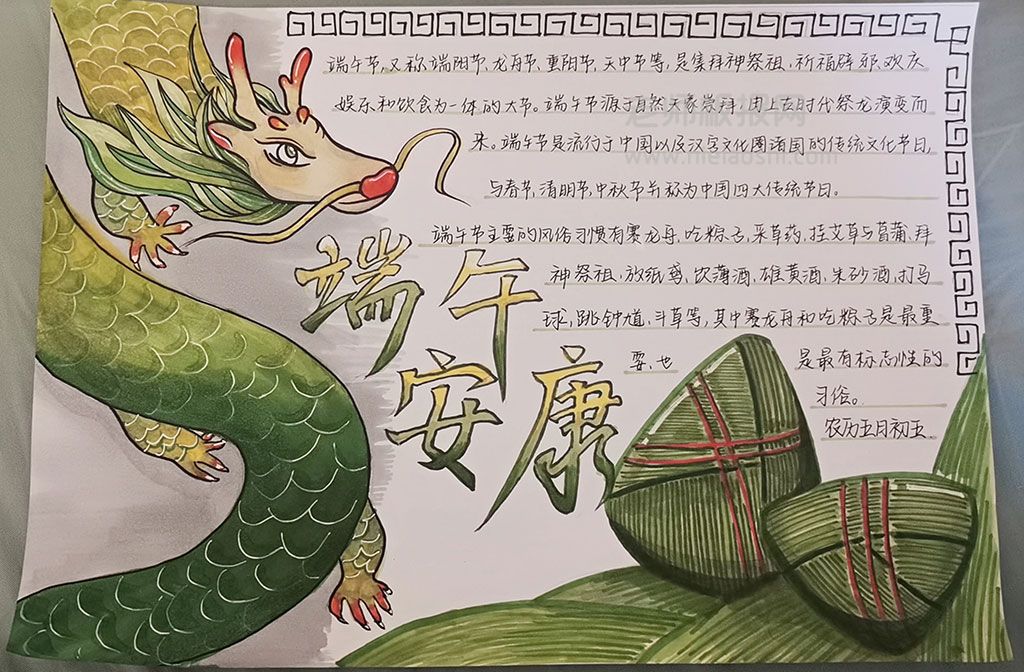 端午节,又称端阳节、龙舟节、重阳节、天中节等,是集拜神祭祖、祈福辟邪、欢庆
娱乐和饮食为一体的大节。端午节源于自然天象崇拜,由上古时代祭龙演变而
来。端午节是流行于中国以及汉字文化圈诸国的传统文化节日,
与春节,清明节,中秋节并称为中国四大传统节日。
端午节主要的风俗习惯有赛龙舟、吃粽子、采草药、挂艾草与菖蒲、拜
神祭祖、放纸鸢、饮薄酒、雄黄酒、朱砂酒、打马
球、跳钟馗、斗草等,其中赛龙舟和吃粽子是最重
要、也是最有标志性的
习俗。
农历五月初五
端午
安康
老师板报网